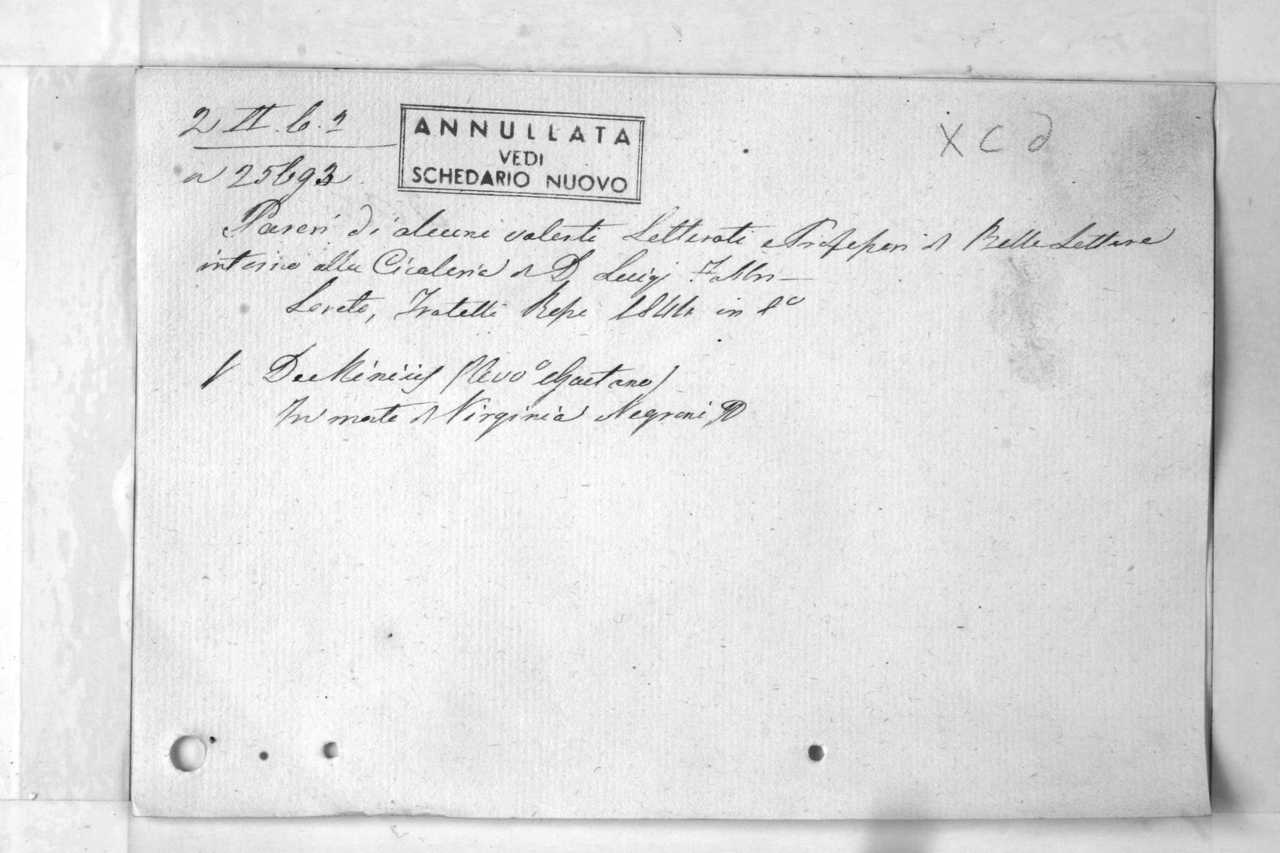 2 II. b. 2
ANNULLATA
VEDI
SCHEDARIO NUOVO
X C d
a 25693
Pareri di alcuni valenti Letterati e Professori di Belle Lettere
intorno alla Cicaleria di D. Luigi Fabbri
Loreto, Fratelli Rossi 1844 in 8º
De Minicis (Avvº Gaetano)
In morte di Virginia Negroni